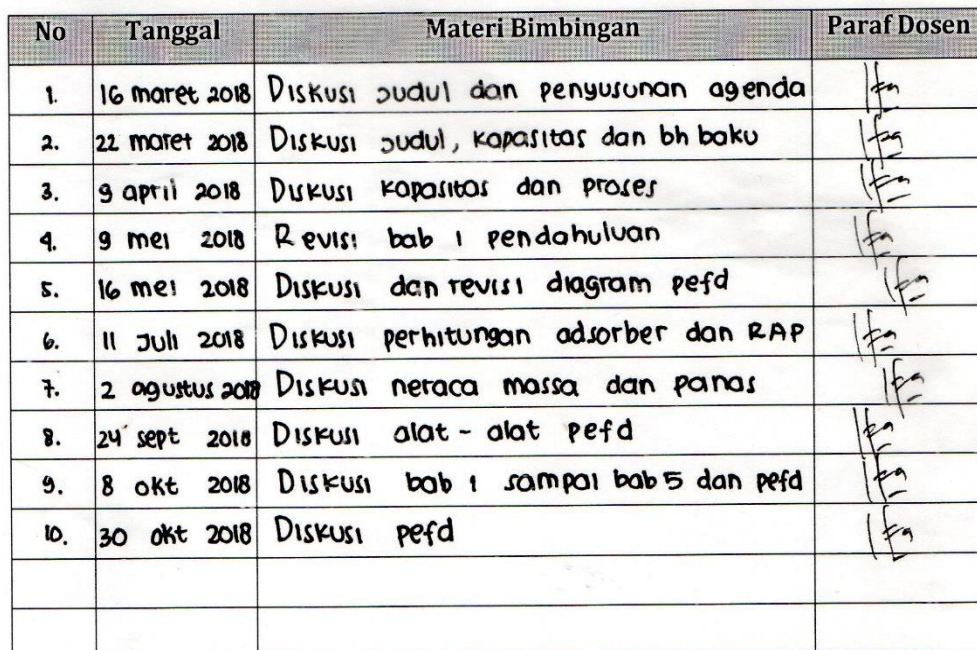 No Tanggal Materi Bimbingan Paraf Dosen
1. 16 maret 2018 Diskusi judul dan penyusunan agenda
2. 22 maret 2018 Diskusi judul, kapasitas dan bh baku
3. 9 april 2018 Diskusi kapasitas dan proses
4. 9 mei 2018 Revisi bab 1 pendahuluan
5. 16 mei 2018 Diskusi dan revisi diagram pefd
6. 11 Juli 2018 Diskusi perhitungan adsorber dan RAP
7. 2 agustus 2018 Diskusi neraca massa dan panas
8. 24 sept 2018 Diskusi alat - alat pefd
9. 8 okt 2018 Diskusi bab 1 sampai bab 5 dan pefd
10. 30 okt 2018 Diskusi pefd